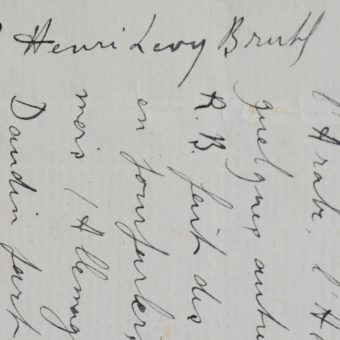 Henri Levy Bruhl
l'Arabe, l'A
quelques autre
R. B. fait des
en pourparlers
mois l'Allemag
Daudin part